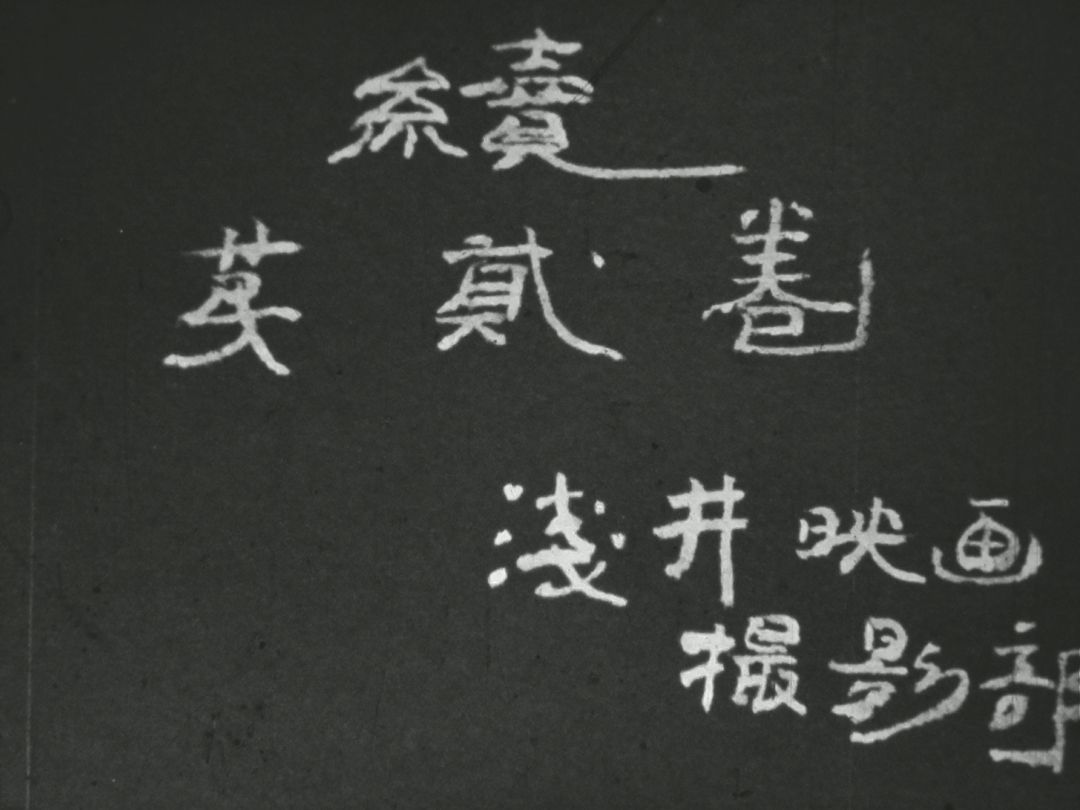 續
第貳巻
浅井映画
撮影部